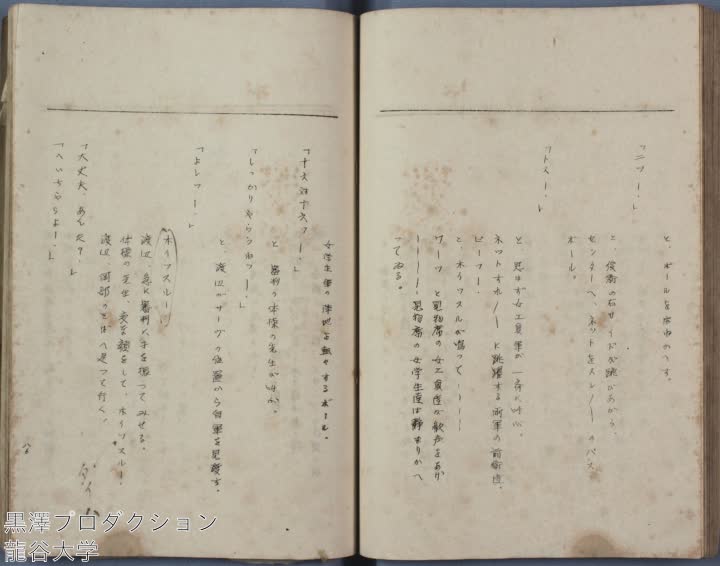 と、ボールを
「ニツー。」
と、後衛の右サイドが跳びあがり、
センターへ、ネットをスレ〳〵のパス
ボール。
「トスー。」
と、思はず女工員軍が一斉に叫ぶ。
ネットすれ〳〵に跳躍する両軍の前衛達。
ピーフー
と、ホイツスルが鳴つて――
ワーツと見物席の女工員達が歓声をあげ
――見物席の女学生達は静まりかへ
つてゐる。
女学生軍の陣地を転々するボール。
「十六対十六ー。」
と審判の体操の先生が叫ぶ。
「しつかりやらうねツー。」
と、渡辺がサーヴの位置から自軍を見渡す。
「よしツー。」
ホイツスルー
渡辺、急に審判へ手を振つてみせる。
体操の先生、変な顔をして、ホイツスルー。
渡辺、岡部のそばへ走つて行く。
「大丈夫、あんた？」
「へいちやらよー。」
タイム
黒澤プロダクション
龍谷大学